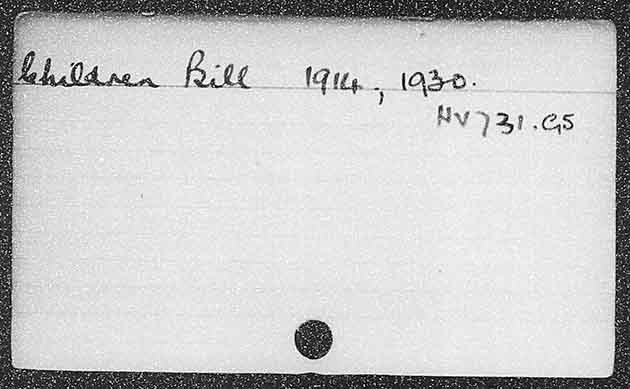 Children Bill 1914, 1930.
HV731.G5